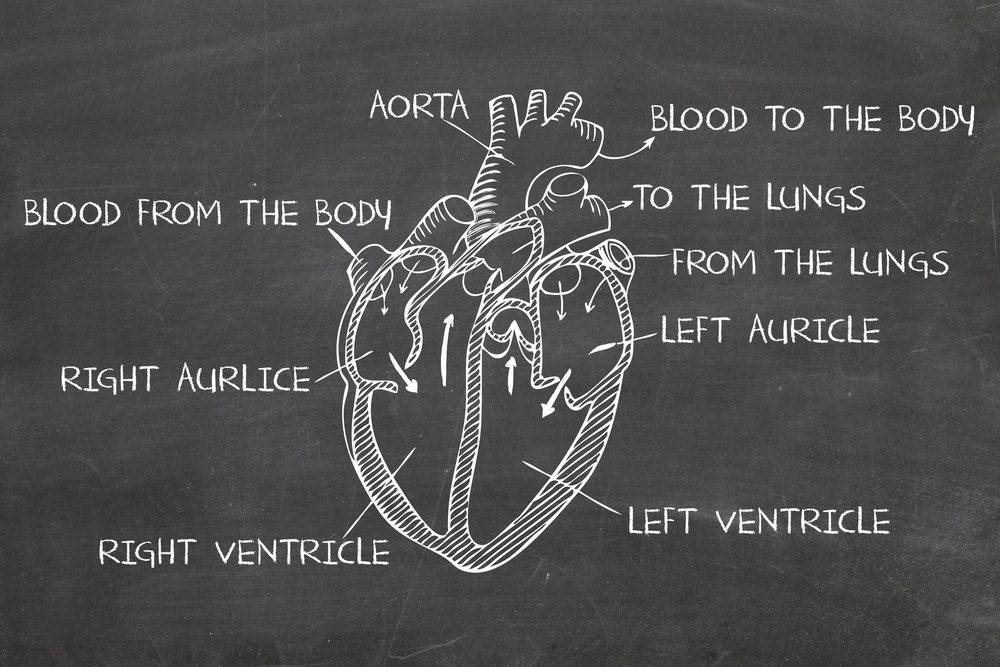 AORTA
BLOOD TO THE BODY
TO THE LUNGS
BLOOD FROM THE BODY
FROM THE LUNGS
LEFT AURICLE
RIGHT AURLICE
LEFT VENTRICLE
RIGHT VENTRICLE